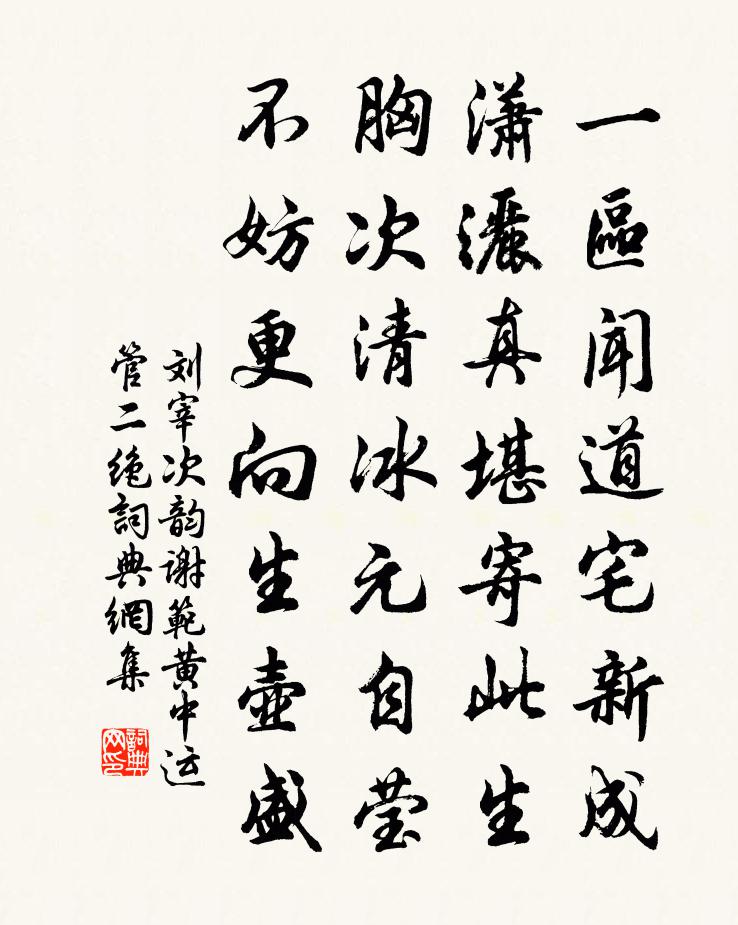 一區聞道宅新成
瀟灑真堪寄此生
胸次清冰元自瑩
不妨更向生壺盛
刘宰次韵謝範黄中运
管二绝詞典網集
詞典网印